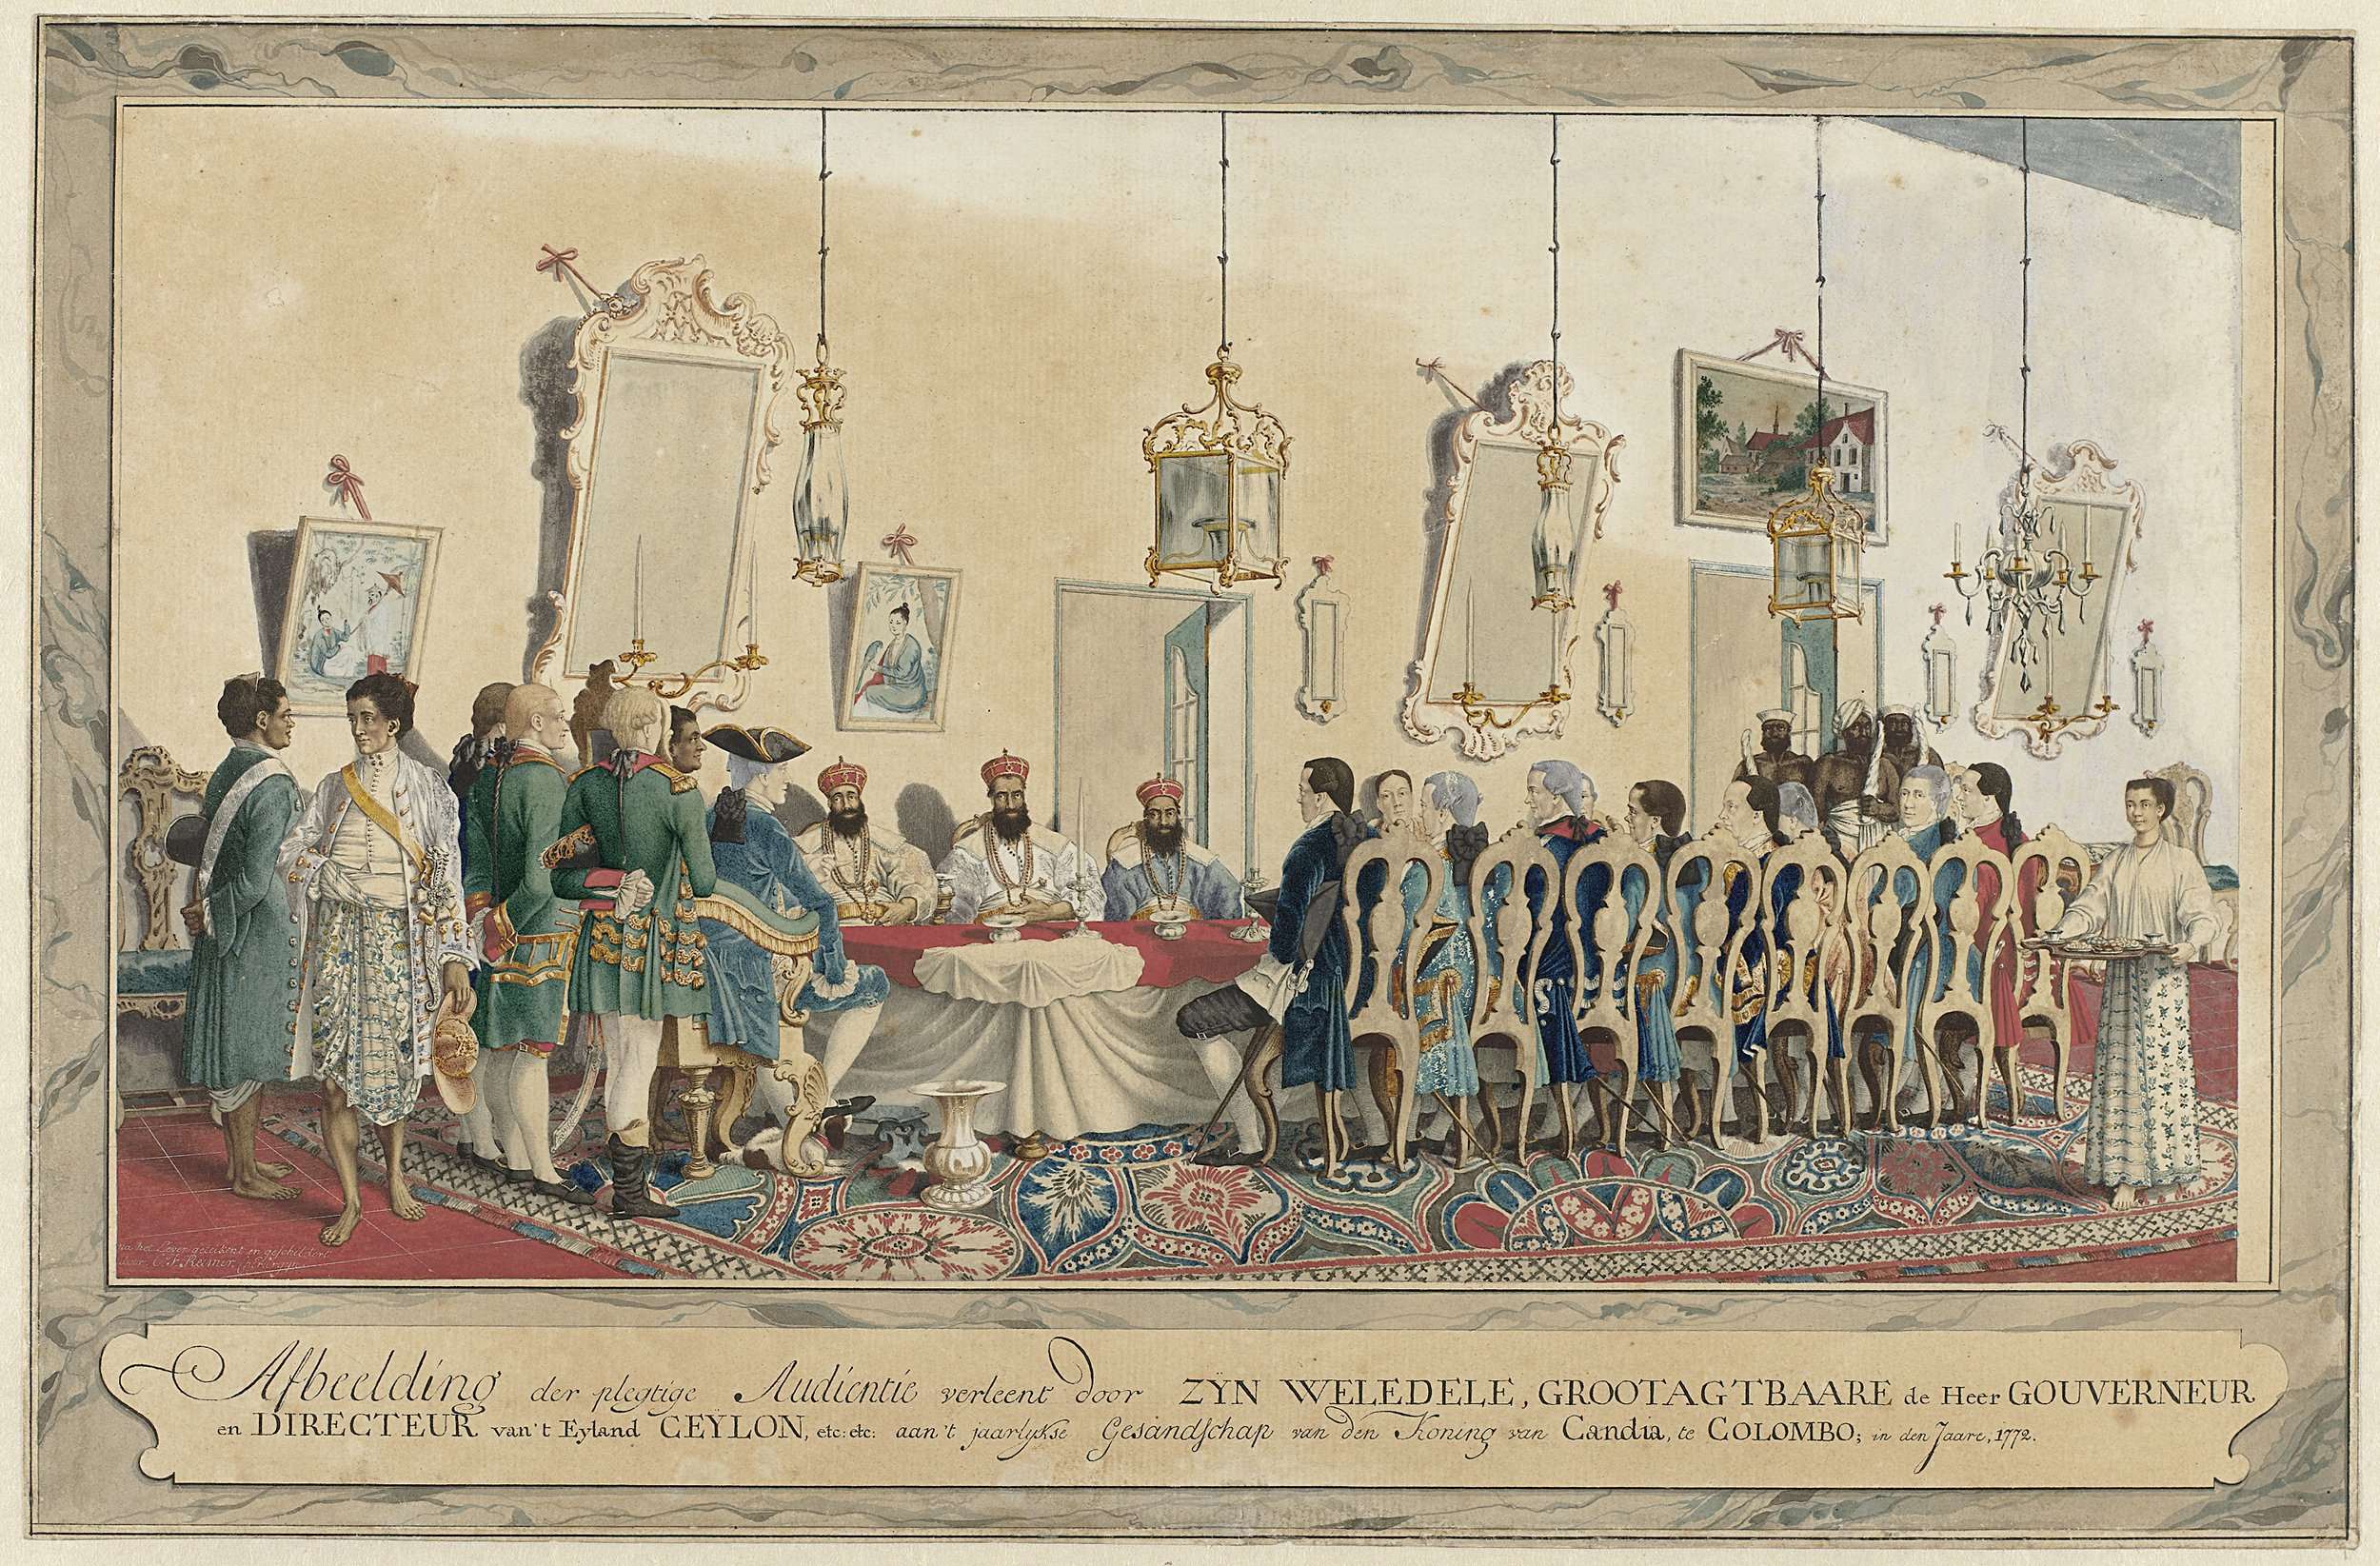 na het Leven geteikent en geschildert
door C. F. Reimer
Afbeelding der plegtige Audientie verleent door ZÿN WELEDELE, GROOTAGTBAARE de Heer GOUVERNEUR
en DIRECTEUR van't Eyland CEÿLON, etc: etc: aan't jaarlykse Gesandschap van den Koning van Candia, te COLOMBO; in den Jaare, 1772.